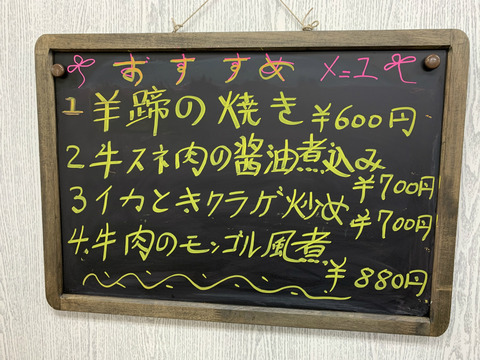 おすすめ メニュー
1 羊蹄の焼き ¥600円
2 牛スネ肉の醤油煮込み ¥700円
3 イカときクラゲ炒め ¥700円
4. 牛肉のモンゴル風煮 ¥880円